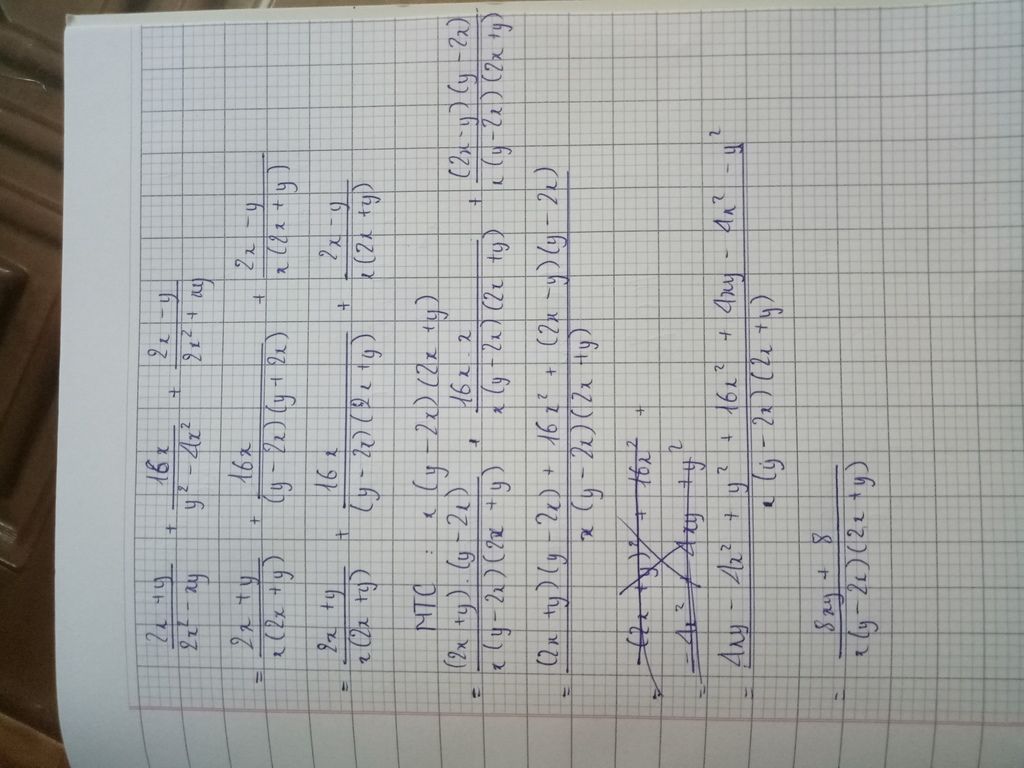 (2x + y)/(2x² - xy) + 16x/(y² - 4x²) + (2x - y)/(2x² + xy)
= (2x + y)/(x(2x + y)) + 16x/((y - 2x)(y + 2x)) + (2x - y)/(x(2x + y))
= (2x + y)/(x(2x + y)) + 16x/((y - 2x)(2x + y)) + (2x - y)/(x(2x + y))
MTC : x(y - 2x)(2x + y)
= (2x + y).(y - 2x)/(x(y - 2x)(2x + y)) + 16x.x/(x(y - 2x)(2x + y)) + (2x - y)(y - 2x)/(x(y - 2x)(2x + y))
= ((2x + y)(y - 2x) + 16x² + (2x - y)(y - 2x))/(x(y - 2x)(2x + y))
= (2x + y)² + 16x² +
= 4x² + 4xy + y²
= (4xy - 4x² + y² + 16x² + 4xy - 4x² - y²)/(x(y - 2x)(2x + y))
= (8xy + 8)/(x(y - 2x)(2x + y))